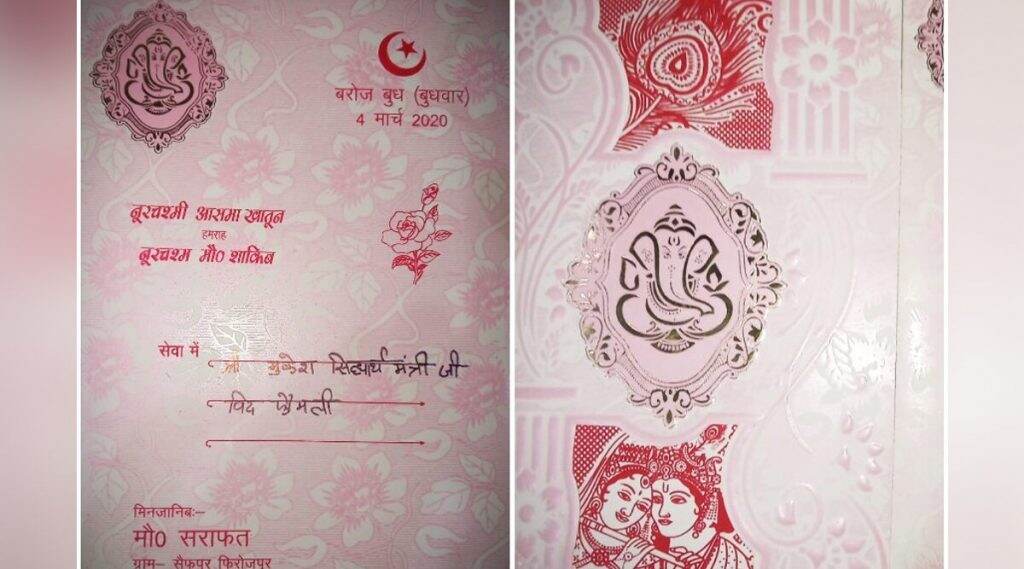 बरोज बुध (बुधवार)
4 मार्च 2020
नूरचश्मी आसमा खातून
हमराह
नूरचश्म मौ0 शाकिब
सेवा में
श्री मुकेश सिद्धार्थ मंत्री जी
विद फैमली
मिनजानिबः–
मौ0 सराफत
ग्राम– सैफपुर फिरोजपुर